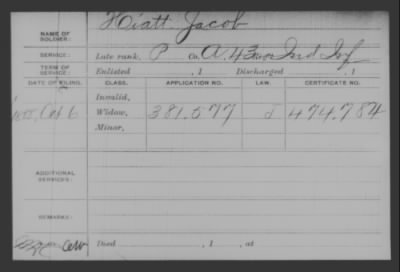 NAME OF SOLDIER: Hiatt Jacob
SERVICE: Late rank, P Co. A, 43 Ind Inf
TERM OF SERVICE: Enlisted , 1 Discharged , 1
DATE OF FILING. CLASS. APPLICATION NO. LAW. CERTIFICATE NO.
Invalid,
Oct 6 Widow, 381,577 474,784
Minor,
ADDITIONAL SERVICES:
REMARKS:
Died , 1 , at